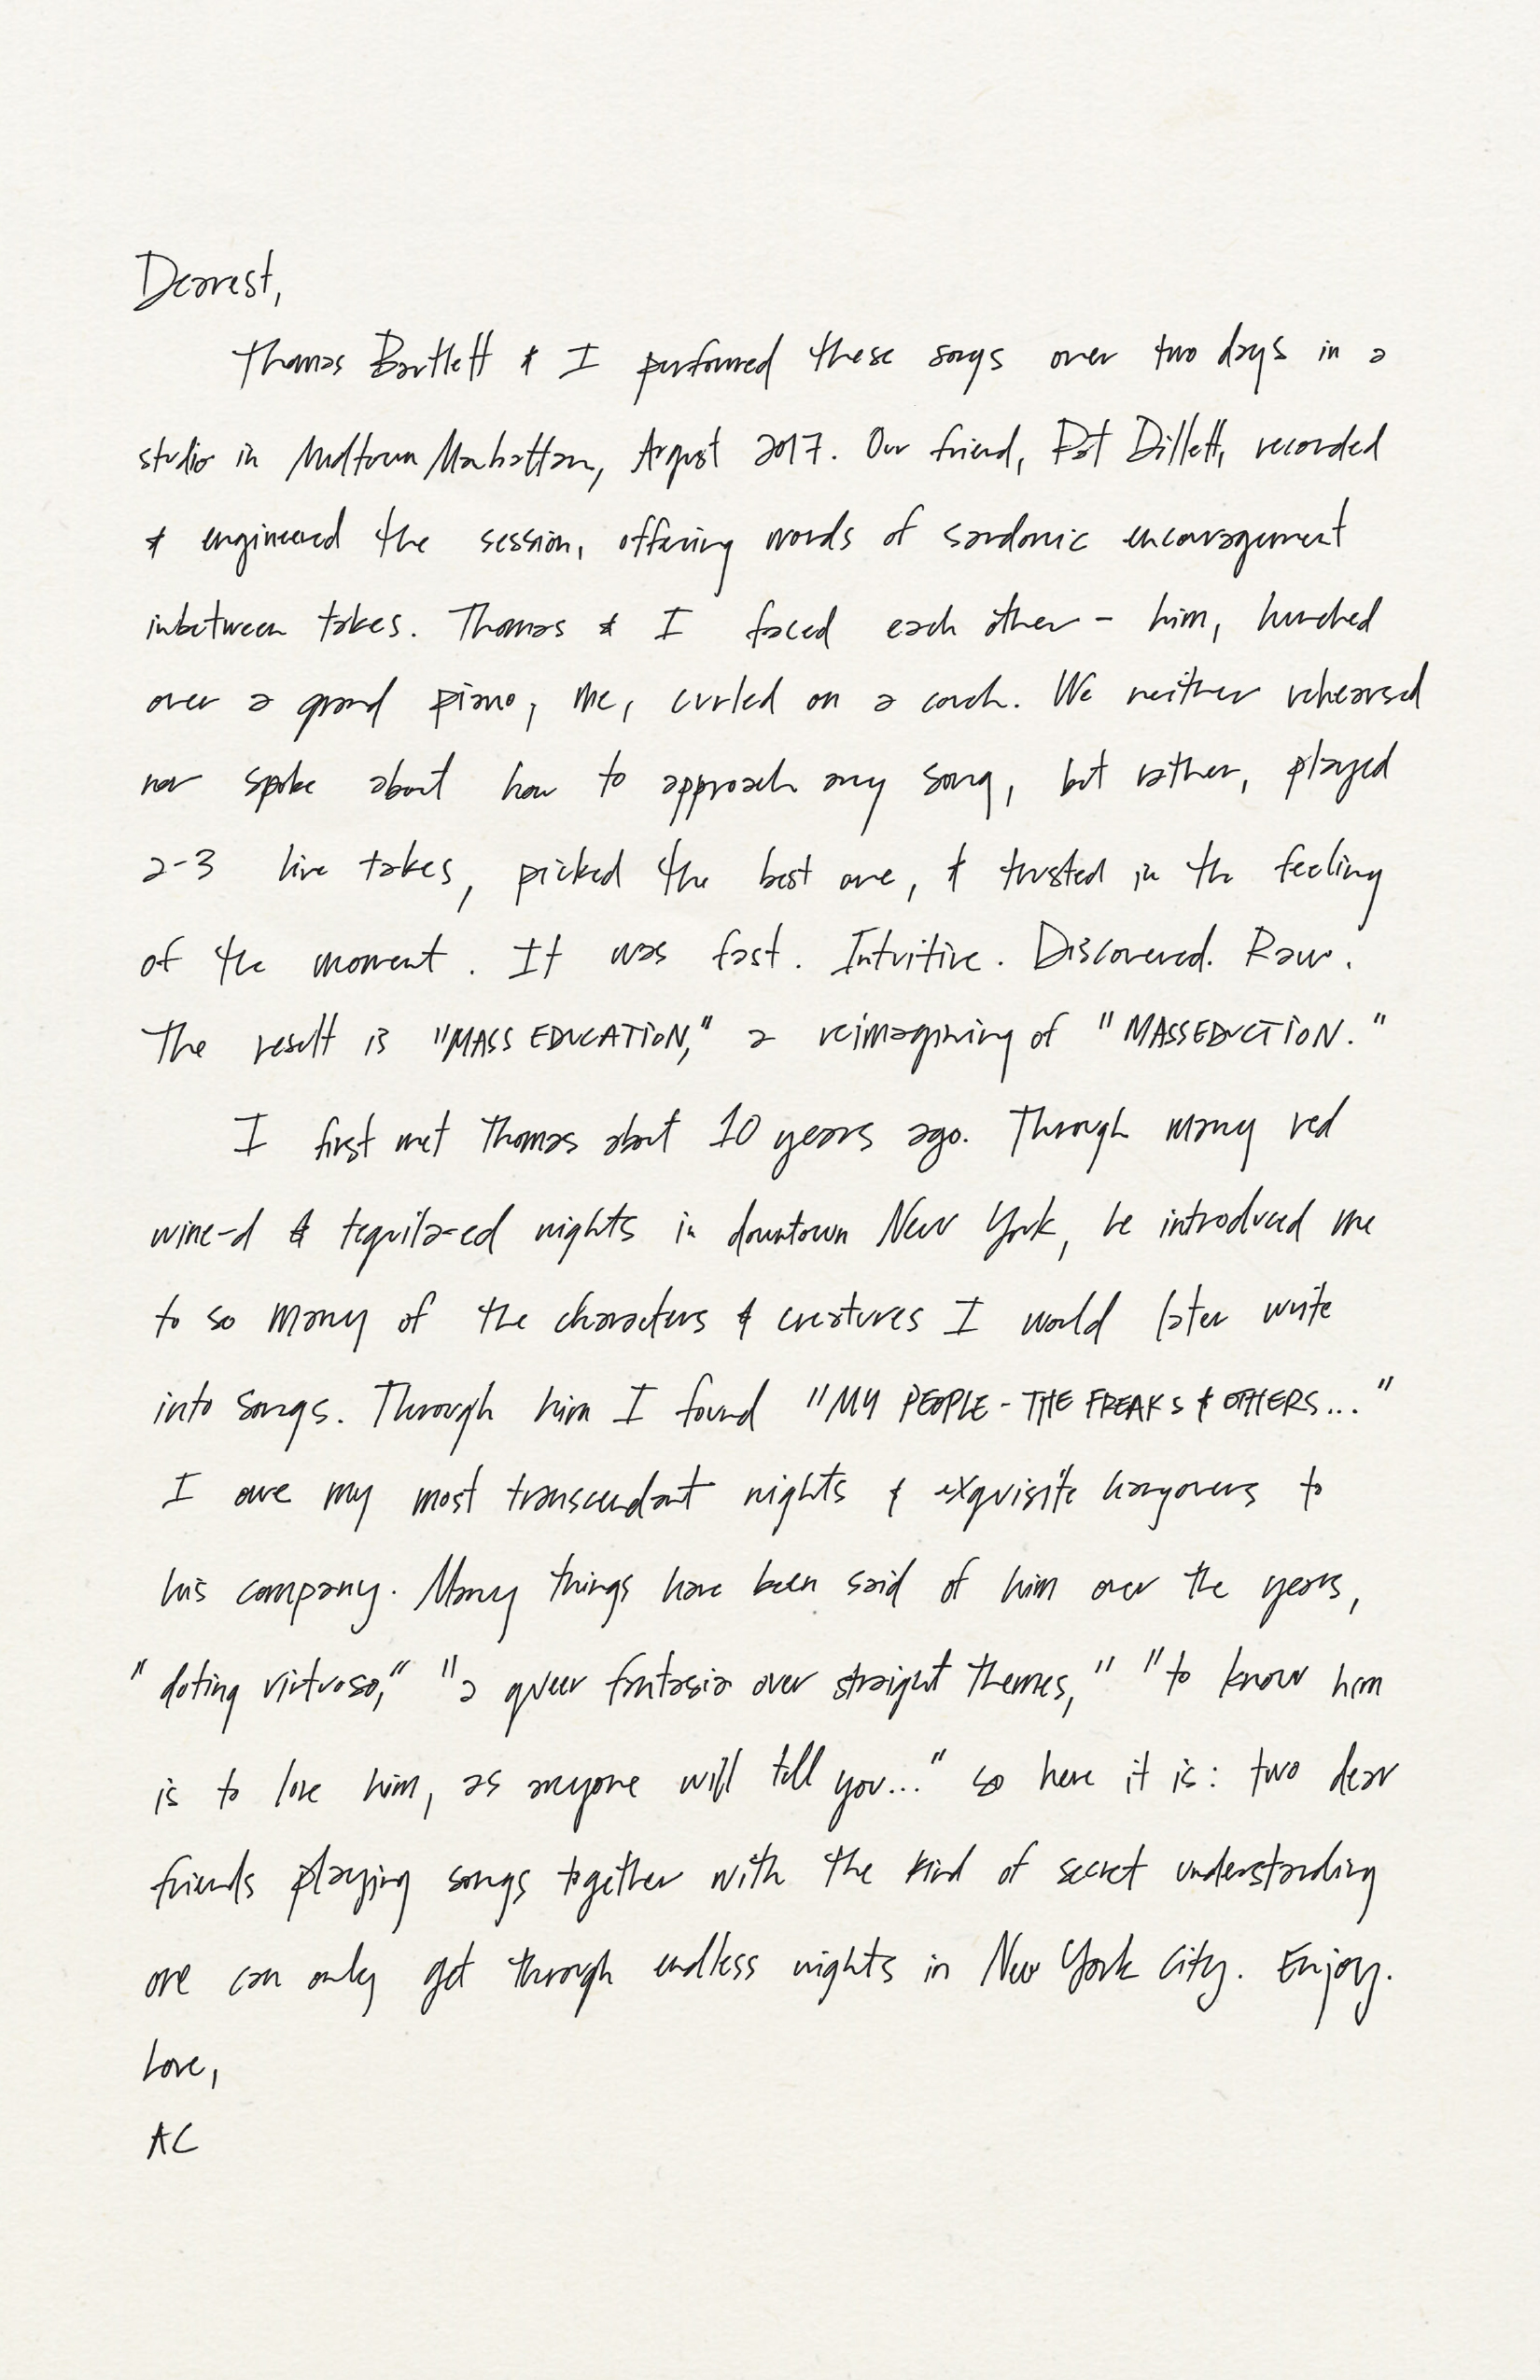 Dearest,
Thomas Bartlett & I performed these songs over two days in a
studio in Midtown Manhattan, August 2017. Our friend, Pat Dillett, recorded
& engineered the session, offering words of sardonic encouragement
inbetween takes. Thomas & I faced each other - him, hunched
over a grand piano, me, curled on a couch. We neither rehearsed
nor spoke about how to approach any song, but rather, played
2-3 live takes, picked the best one, & trusted in the feeling
of the moment. It was fast. Intuitive. Discovered. Raw.
The result is "MASS EDUCATION," a reimagining of "MASSEDUCTION."
I first met Thomas about 10 years ago. Through many red
wine-d & tequila-ed nights in downtown New York, he introduced me
to so many of the characters & creatures I would later write
into songs. Through him I found "MY PEOPLE - THE FREAKS & OTHERS..."
I owe my most transcendant nights & exquisite hangovers to
his company. Many things have been said of him over the years,
"doting virtuoso," "a queer fantasia over straight themes," "to know him
is to love him, as anyone will tell you..." so here it is: two dear
friends playing songs together with the kind of secret understanding
one can only get through endless nights in New York City. Enjoy.
Love,
AC